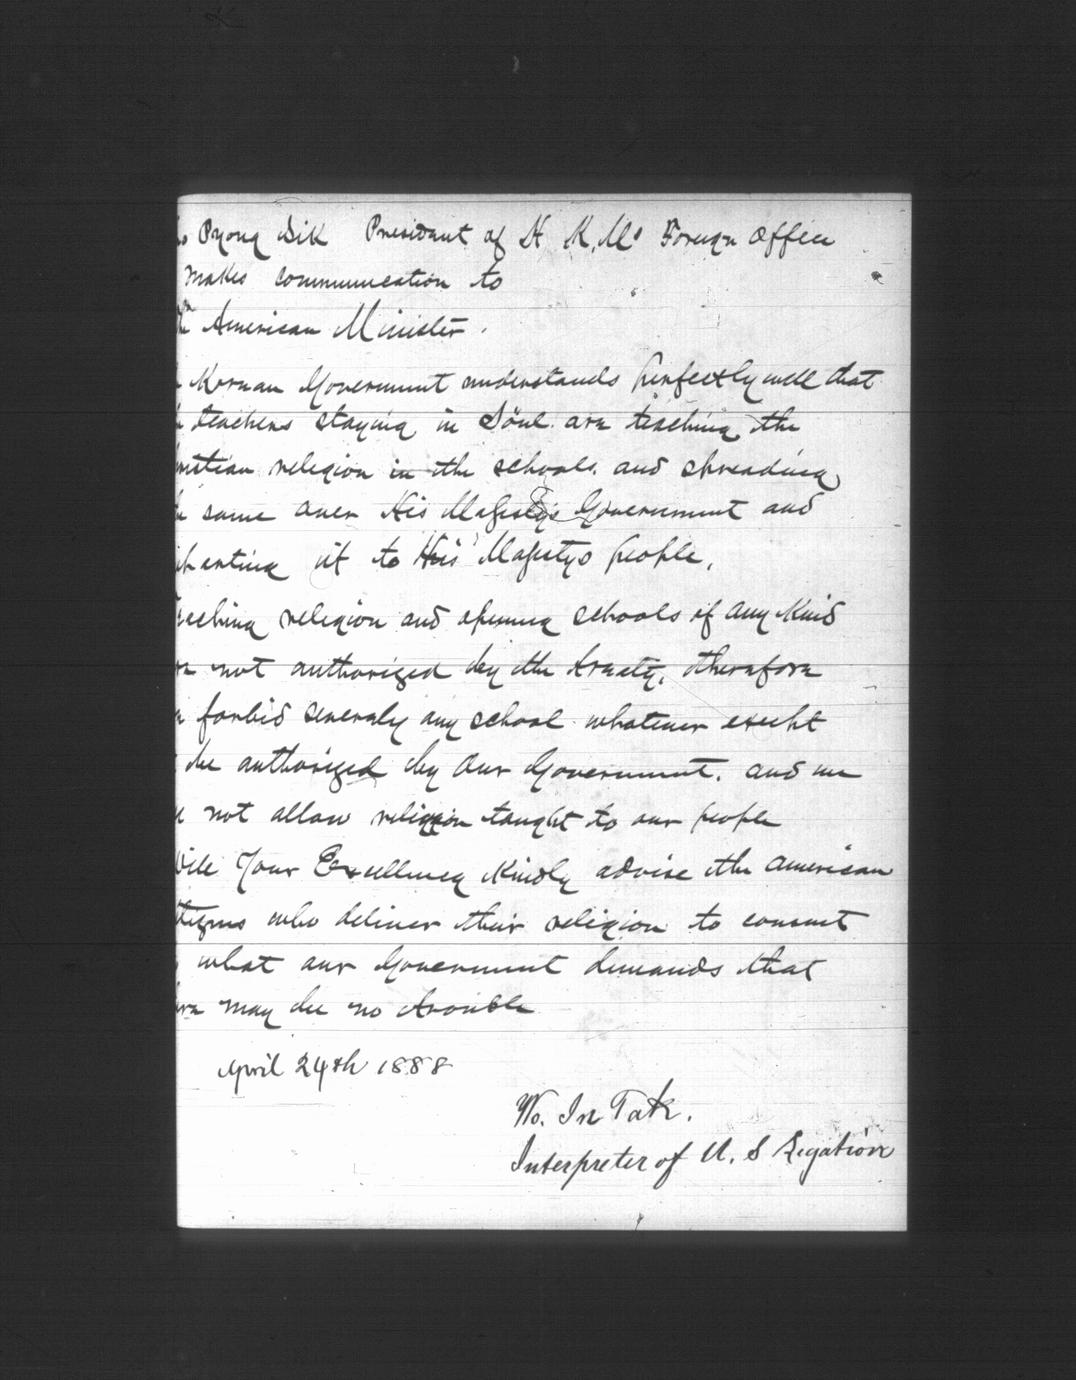 o Pyong Sik President of H. K. M's Foreign Office
makes communication to
American Minister.
Korean Government understands perfectly well that
teachers staying in Söul are teaching the
religion in the schools and spreading
same over His Majesty's Government and
it to His Majestys people.
religion and opening schools of any kind
not authorized by the treaty, therefore
forbid severely any school whatever except
be authorized by our Government. and we
not allow religion taught to our people
Will Your Excellency kindly advise the American
who deliver their religion to consult
what our Government demands that
may be no trouble
April 24th 1888
Wo. In Tak.
Interpreter of U. S Legation